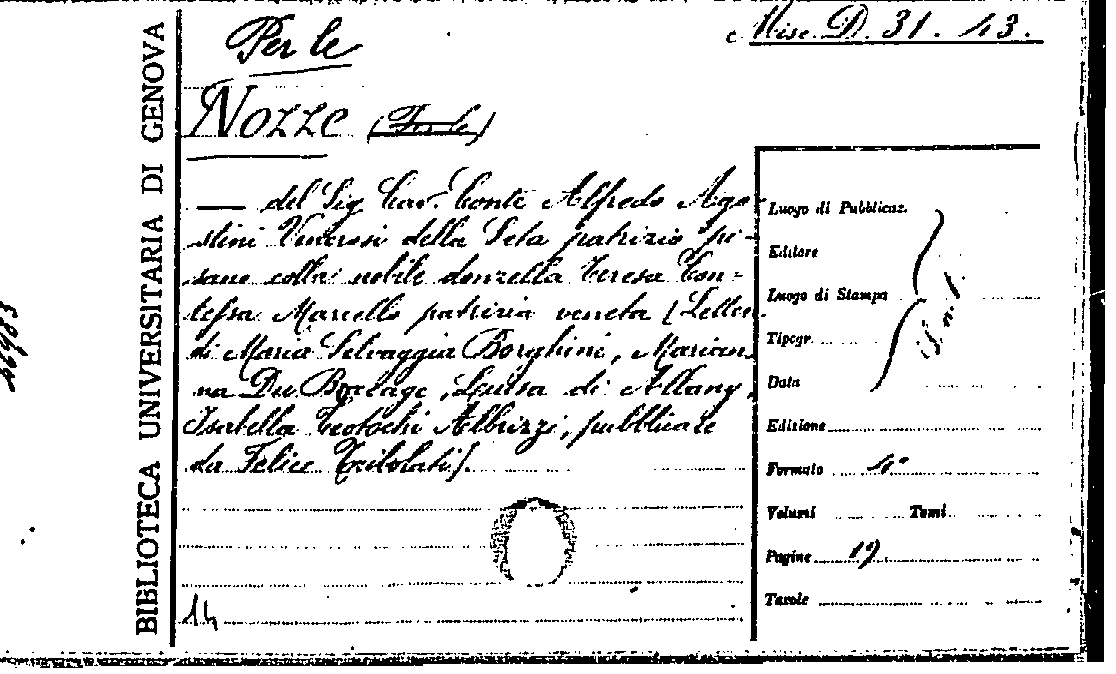 Misc. D. 31. 43.
Per le
Nozze (Per le)
— del Sig. Cav. Conte Alfredo Ago-
stini Venerosi della Seta patrizio pi-
sano colla nobile donzella Teresa Con-
tessa Marcello patrizia veneta [Lettere
di Maria Selvaggia Borghini, Marian-
na Du Bocage, Luisa di Albany,
Isabella Teotochi Albrizzi, pubblicate
da Felice Tribolati].
14
BIBLIOTECA UNIVERSITARIA DI GENOVA
Luogo di Pubblicaz.
Editore
Luogo di Stampa
Tipogr.
Data
Edizione
Formato 4°
Volumi Tomi
Pagine 19
Tavole